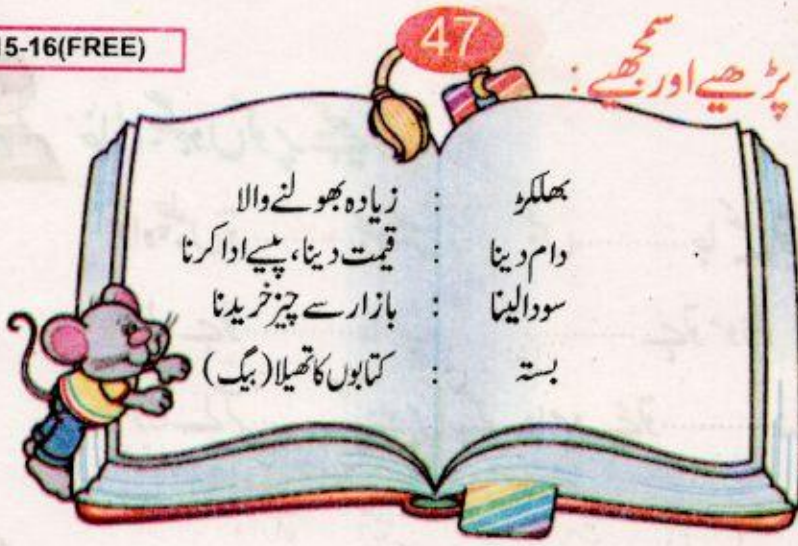 15-16(FREE)
47
پڑھیے اور سمجھیے :
بھلکڑ : زیادہ بھولنے والا
دام دینا : قیمت دینا، پیسے ادا کرنا
سودا لینا : بازار سے چیز خریدنا
بستہ : کتابوں کا تھیلا (بیگ)